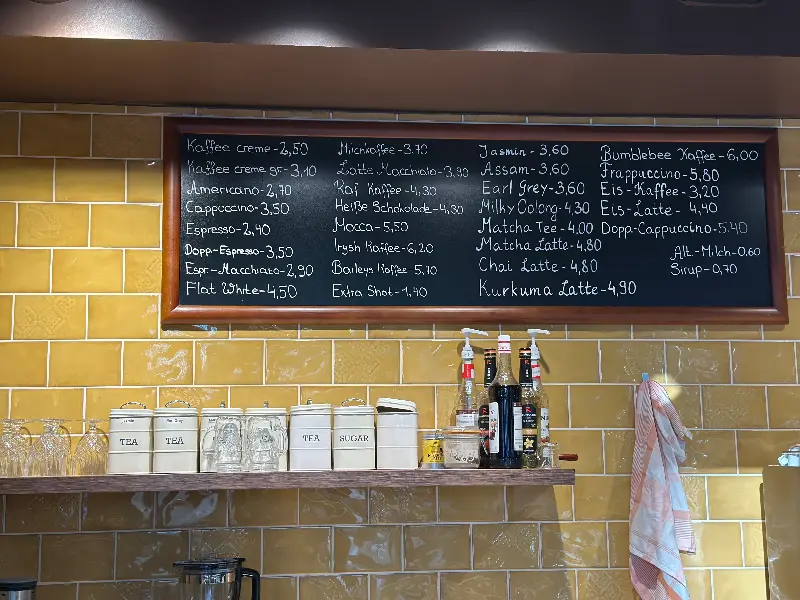 Kaffee creme - 2,50
Kaffee creme gr - 3,10
Americano - 2,70
Cappuccino - 3,50
Espresso - 2,40
Dopp-Espresso - 3,50
Espr.-Macchiato - 2,90
Flat White - 4,50
Milchkaffee - 3,70
Latte Macchiato - 3,90
Kaffee - 4,30
Heiße Schokolade - 4,30
Mocca - 5,50
Irysh Kaffee - 6,20
Baileys Kaffee 5,70
Extra Shot - 1,40
Jasmin - 3,60
Assam - 3,60
Earl Grey - 3,60
Milky Oolong - 4,30
Matcha Tee - 4,00
Matcha Latte - 4,80
Chai Latte - 4,80
Kurkuma Latte - 4,90
Bumblebee Kaffee - 6,00
Frappuccino - 5,80
Eis-Kaffee - 3,20
Eis-Latte - 4,40
Dopp-Cappuccino - 5,40
Alt.-Milch - 0,60
Sirup - 0,70
TEA
TEA
TEA
SUGAR